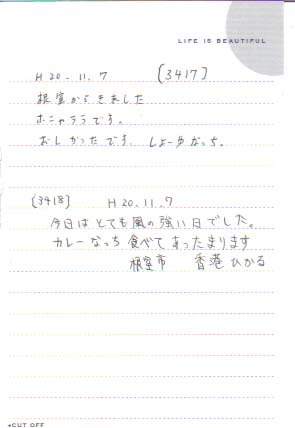 LIFE IS BEAUTIFUL
H 20. 11. 7 [3417]
根室からきました
ホニャララです。
おしかったです。しょーゆなっち.
[3418] H 20.11.7
今日はとても風の強い日でした。
カレーなっち食べてあったまります
根室市 香港ひかる
◂CUT OFF